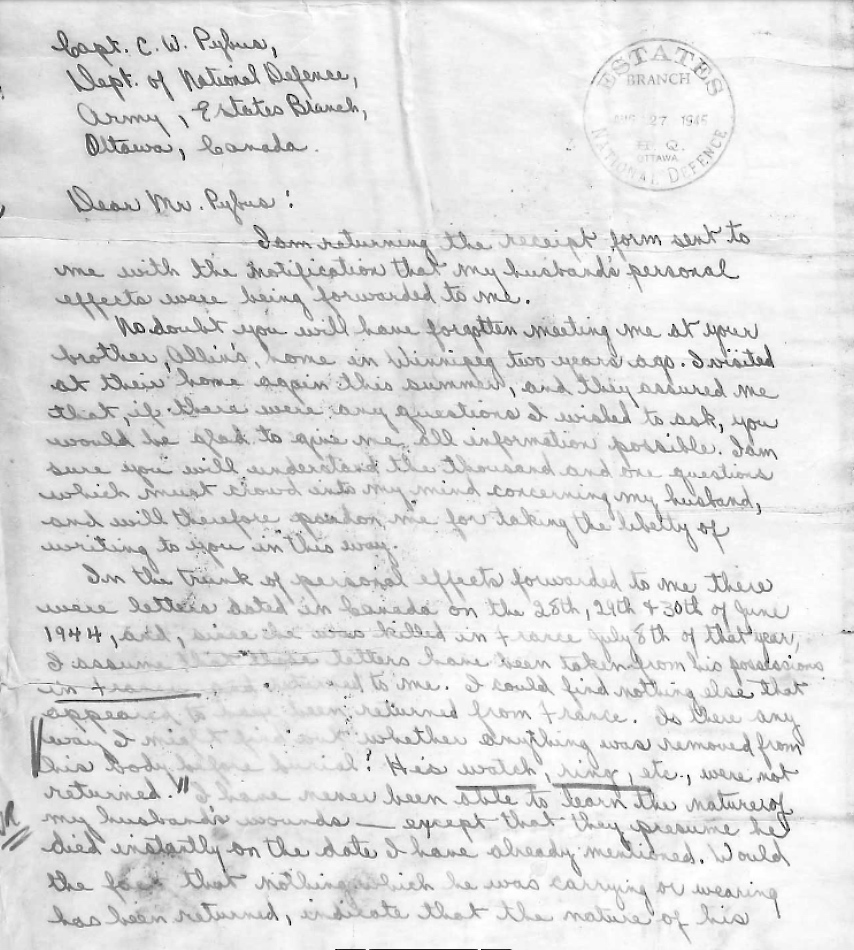 Capt. C. W. Pybus,
Dept. of National Defence,
Army, Estates Branch,
Ottawa, Canada.
ESTATES
BRANCH
AUG 27 1945
H. Q.
OTTAWA
NATIONAL DEFENCE
Dear Mr. Pybus:
I am returning the receipt form sent to
me with the notification that my husband's personal
effects were being forwarded to me.
No doubt you will have forgotten meeting me at your
brother, Allin's, home in Winnipeg two years ago. I visited
at their home again this summer, and they assured me
that, if there were any questions I wished to ask, you
would be glad to give me all information possible. I am
sure you will understand the thousand and one questions
which must crowd into my mind concerning my husband,
and will therefore pardon me for taking the liberty of
writing to you in this way.
In the trunk of personal effects forwarded to me there
were letters dated in Canada on the 28th, 29th & 30th of June
1944, and, since he was killed in France July 8th of that year,
I assume that these letters have been taken from his possessions
in France and to me. I could find nothing else that
appeared to have been returned from France. Is there any
way I might find out whether anything was removed from
his body before burial? His watch, ring, etc., were not
returned." I have never been able to learn the nature of
my husband's wounds — except that they presume he
died instantly on the date I have already mentioned. Would
the fact that nothing which he was carrying or wearing
has been returned, indicate that the nature of his